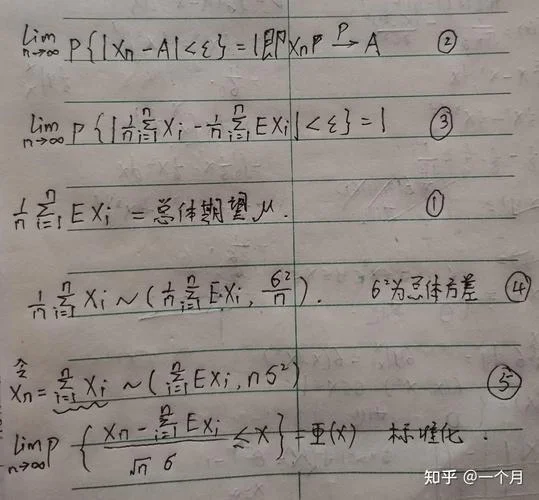 lim n→∞ P{|Xn - A| < ε} = 1 即 Xn P →P A ②
lim n→∞ P{|1/n ∑_{i=1}^{n} Xi - 1/n ∑_{i=1}^{n} EXi| < ε} = 1 ③
1/n ∑_{i=1}^{n} EXi = 总体期望 μ. ①
1/n ∑_{i=1}^{n} Xi ~ (1/n ∑_{i=1}^{n} EXi, σ²/n). σ²为总体方差 ④
令
Xn = ∑_{i=1}^{n} Xi ~ (∑_{i=1}^{n} EXi, nσ²) ⑤
lim n→∞ P{(Xn - ∑_{i=1}^{n} EXi)/(√n σ) ≤ X} = Φ(X) 标准化.
知乎 @一个月